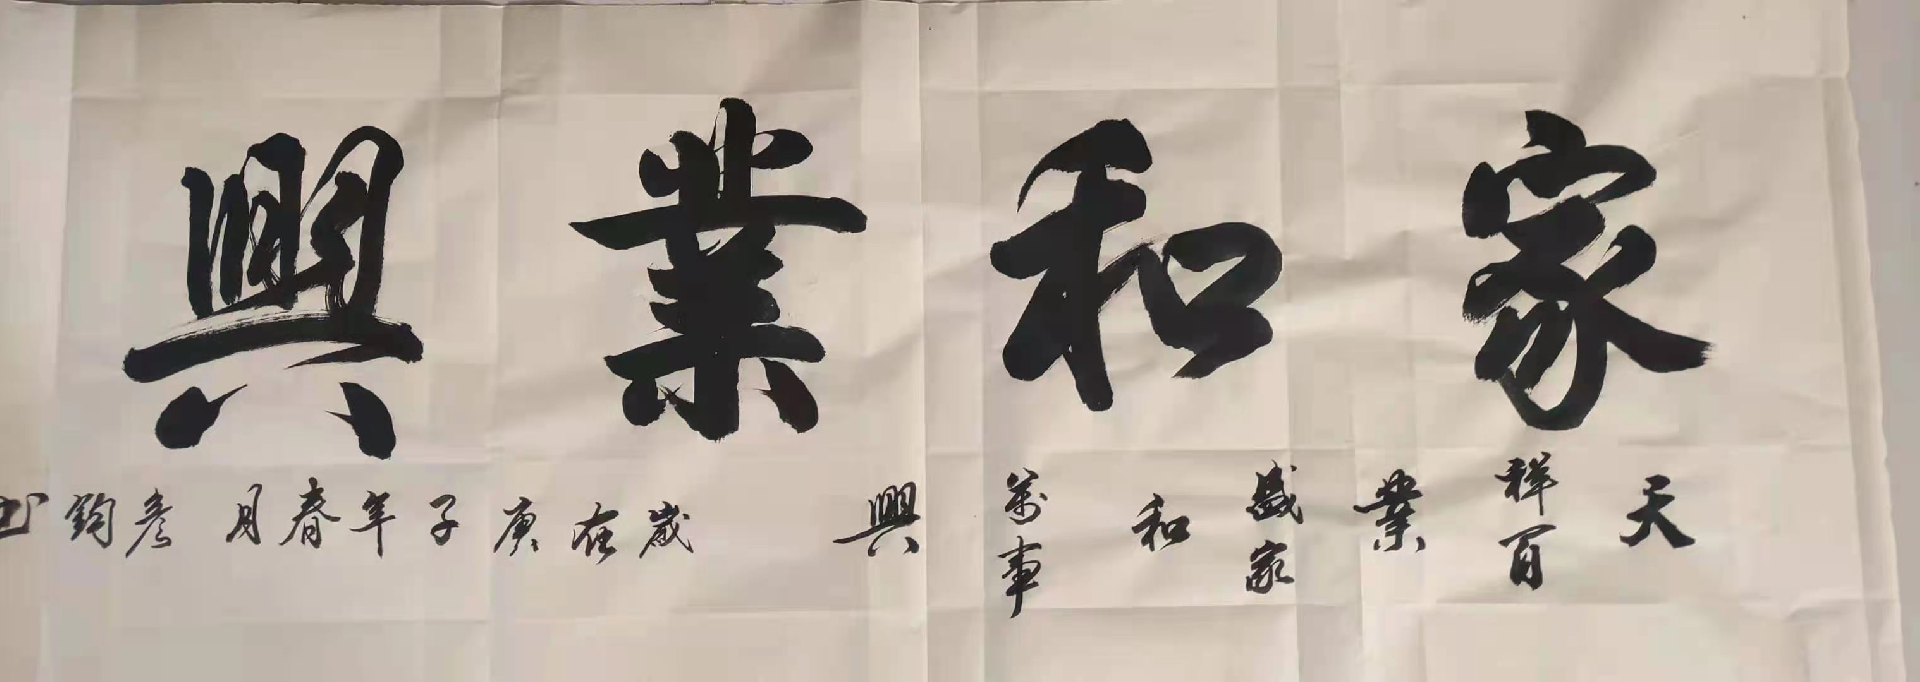 家和業興
天祥百業盛家和萬事興
歲在庚子年春月彥鈞书